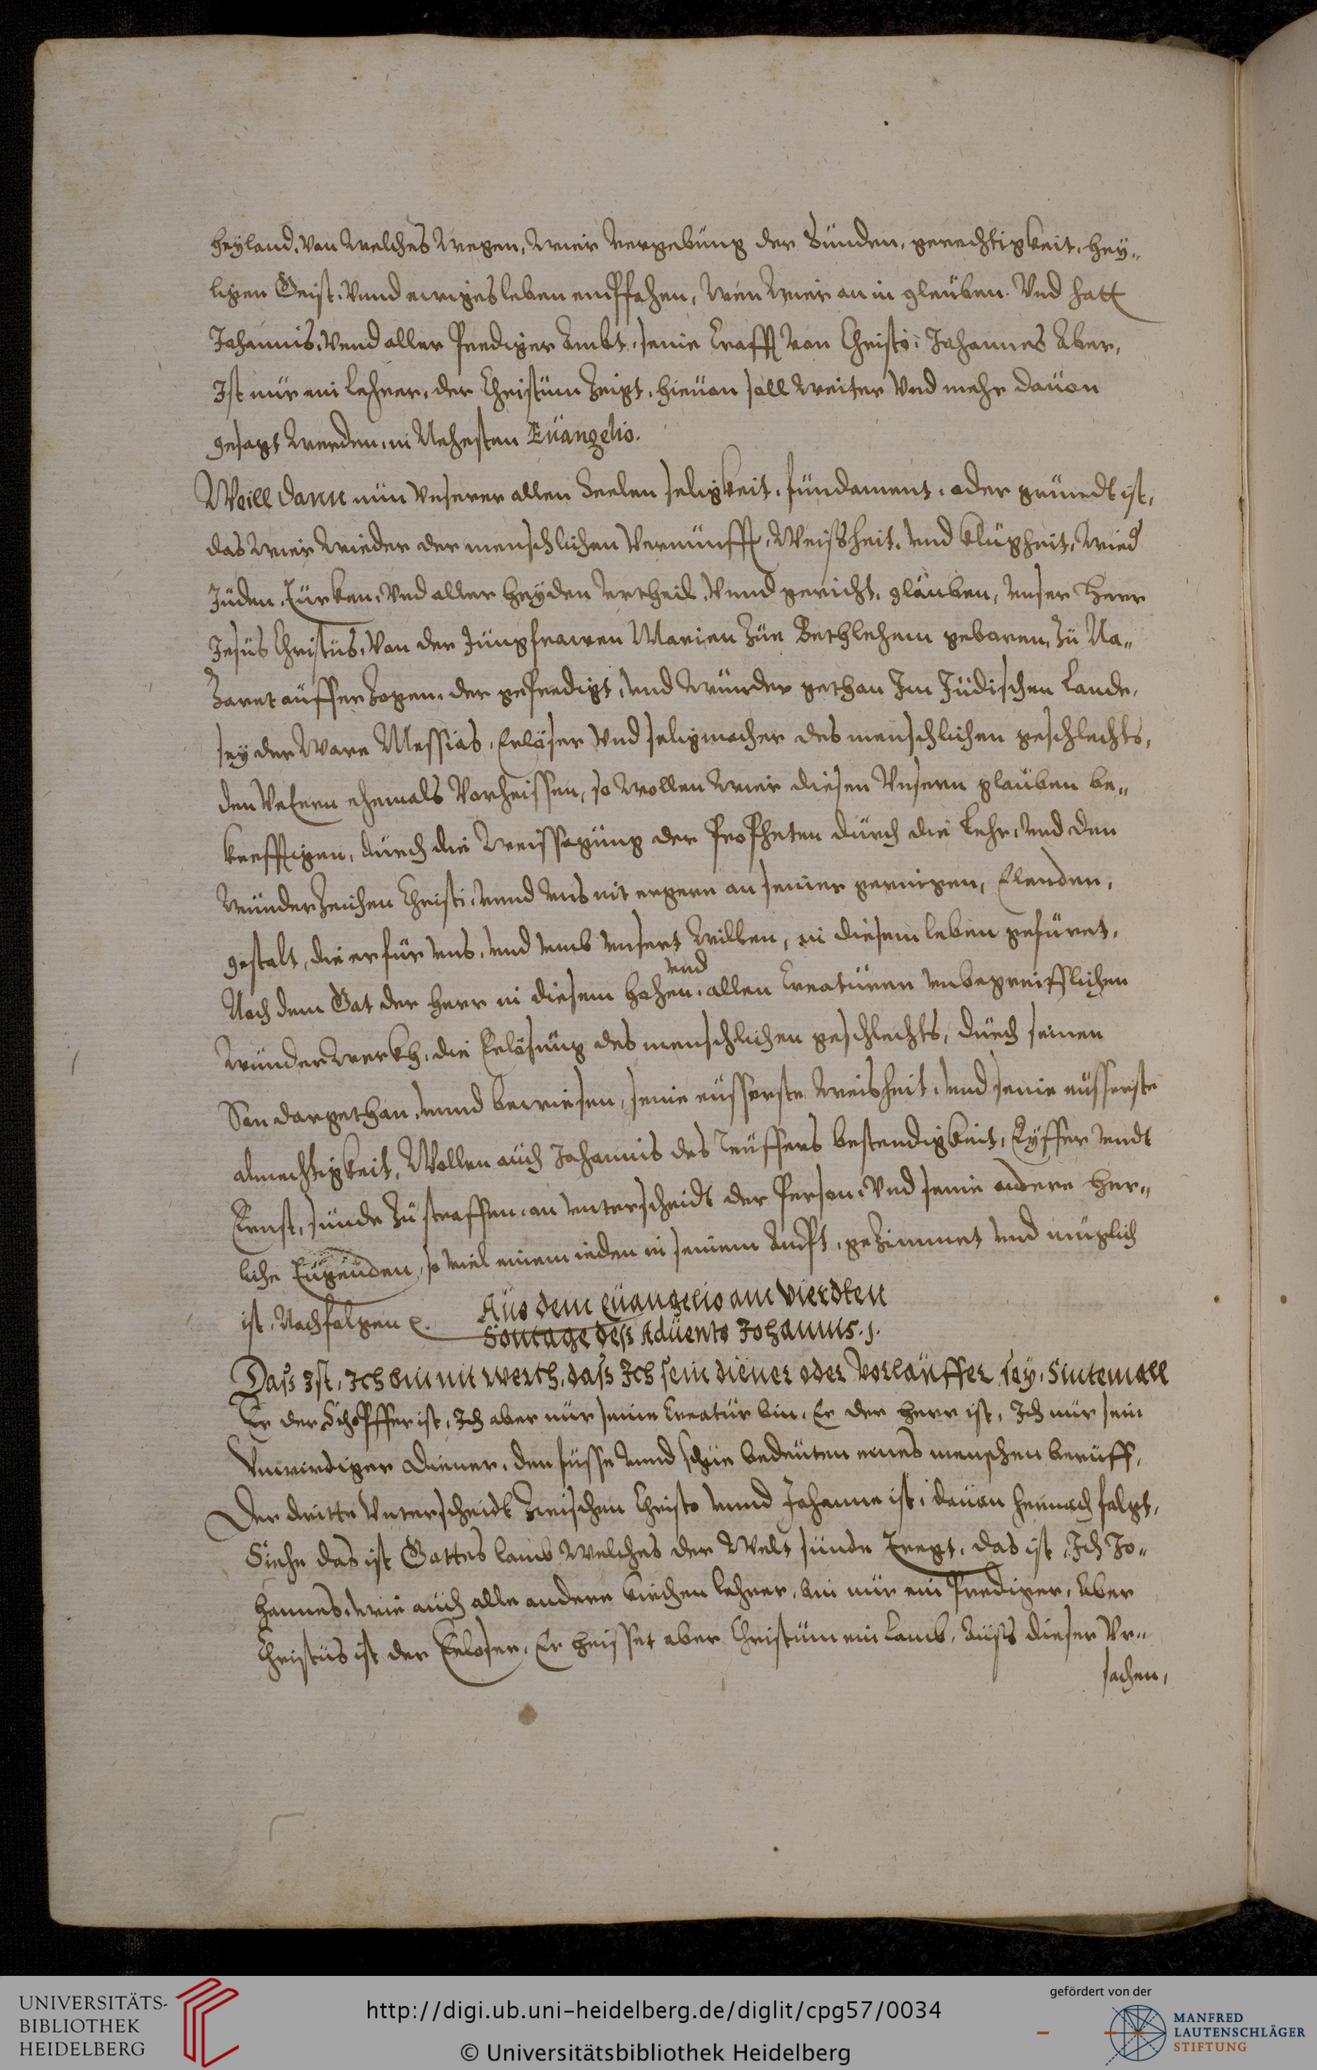 heyland, von welches wegen, wier vergebüng der Sünden, gerechtigkeit, hey„
ligen Geist, vnnd ewiges leben empffahen, wen wier an in glauben. Vnd hatt
Johannis, vnnd aller Prediger Ambt, seine Crafft von Christo: Johannes Aber,
Ist nür ein lehrer, der Christum zeigt, hieuon soll weiter vnd mehr dauon
gesagt werden, in Nehesten Euangelio.
Weill dann nün vnserer allen Seelen seligkeit, fündament, oder gründt ist,
das wier wieder der menschlichen vernünfft, Weißheit, vnd klügheit, wied
Jüden, Türken, vnd aller heyden vrtheil, vnnd gericht, glauben, vnser Herr
Jesüs Christüs, von der Jüngfrawen Marien züe Bethlehem geboren, zü Na„
zaret aufferzogen, der gepredigt, vnd wünder gethan Im Jüdischen Lande,
sey der ware Messias, Erlöser vnd seligmacher des menschlichen geschlechts,
den Vetern ehemals verheissen, so wollen wier diesen vnsern glauben be„
krefftigen, durch die weissagüng der Propheten dürch die Lehr, vnd den
wünderzeichen Christi, vnnd vns nit ergern an seiner geringen, Elenden,
gestalt, die er für vns, vnd vmb vnsert willen, in diesem leben gefüret,
Noch dem Gat der herr in diesem hohen, vnd allen Creatüren vnbegreifflichen
wünderwerkh, die Erlösüng des menschlichen geschlechts, dürch seinen
Son dargethan, vnnd bewiesen, seine eüsserste weisheit, vnd seine eüsserste
almechtigkeit, Wollen auch Johannis des Teüffers bestendigkeit, Eyffer vndt
Ernst, sünde zü straffen, an vnterscheidt der Person, vnd seine andere her„
liche Tügenden, so viel einem ieden in seinem Ampt, gezimmet vnd müglich
ist, Nachfolgen ꝛc.
Aus dem Euangelio am vierdten
Sontage deß Aduents Johannis. 1.
Daß Ist, Ich bin nit werth, daß Ich sein diener oder vorläuffer sey, Sintemall
Er der Schöpffer ist, Ich aber nür seine Creatür bin, Er der herr ist, Ich nür sein
vnwirdiger Diener, den füsse vnnd schüe bedeüten eines menschen berüff,
Der dritte vnterscheidt zwischen Christo vnnd Johanne ist, dauon hernach folgt,
Siehe das ist Gottes lamb welches der Welt sünde tregt, das ist, Ich Jo„
hannes, wie auch alle andere kirchen lehrer, bin nür ein Prediger, Aber
Christüs ist der Erloser, Er heisset aber Christüm ein Lamb, Aüß dieser Vr„
sachen,
UNIVERSITÄTS-
BIBLIOTHEK
HEIDELBERG
http://digi.ub.uni-heidelberg.de/diglit/cpg57/0034
© Universitätsbibliothek Heidelberg
gefördert von der
MANFRED
LAUTENSCHLÄGER
STIFTUNG